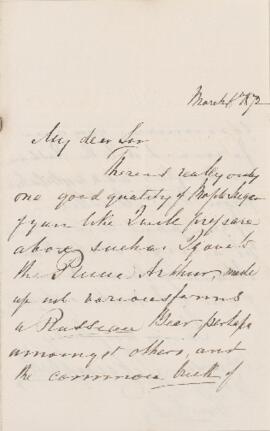 March 8th 1872
My dear Sir
There is really only
one good quality of Maple Sugar
if you like I will prepare
above such as I gave to
the Prince Arthur, made
up not various forms
a Russian Bear perhaps
amongst others, and
the common brick of